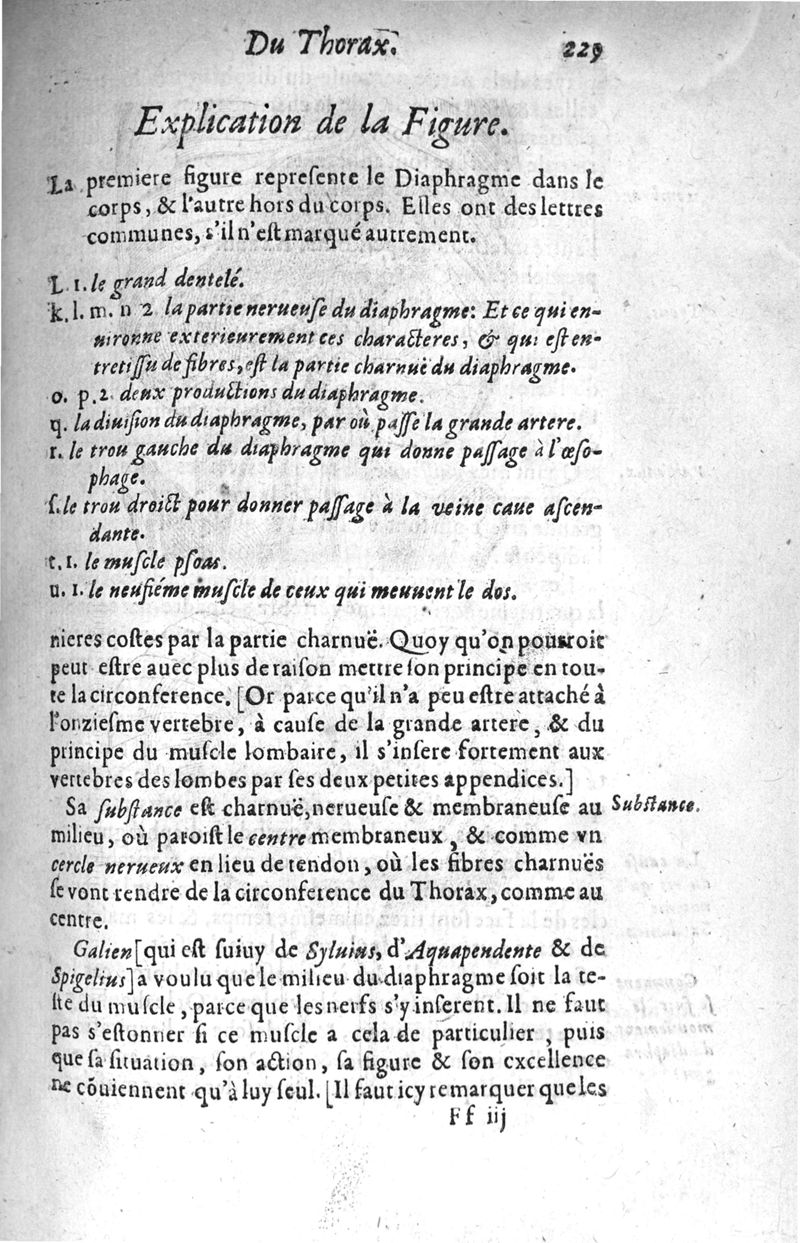 Du Thorax. 229
Explication de la Figure.
La premiere figure repreſente le Diaphragme dans le
corps, & l'autre hors du corps. Elles ont des lettres
communes, s'il n'eſt marqué autrement.
L. 1. le grand dentelé.
k. l. m. n 2 la partie nerueuſe du diaphragme: Et ce qui en-
uironne exterieurement ces characteres, & qui eſt en-
tretiſſu de fibres, eſt la partie charnuë du diaphragme.
o. p. 2. deux productions du diaphragme.
q. la diuiſion du diaphragme, par où paſſe la grande artere.
r. le trou gauche du diaphragme qui donne paſſage à l'œſo-
phage.
ſ. le trou droict pour donner paſſage à la veine caue aſcen-
dante.
t. 1. le muſcle pſoas.
u. 1. le neufiéme muſcle de ceux qui meuuent le dos.
nieres coſtes par la partie charnuë. Quoy qu'on pourroit
peut eſtre auec plus de raiſon mettre ſon principe en tou-
te la circonference. [Or parce qu'il n'a peu eſtre attaché à
l'onzieſme vertebre, à cauſe de la grande artere, & du
principe du muſcle lombaire, il s'inſere fortement aux
vertebres des lombes par ſes deux petites appendices.]
Sa ſubſtance eſt charnuë, nerueuſe & membraneuſe au
Subſtance.
milieu, où paroiſt le centre membraneux, & comme vn
cercle nerueux en lieu de tendon, où les fibres charnuës
ſe vont rendre de la circonference du Thorax, comme au
centre.
Galien [qui eſt ſuiuy de Syluius, d'Aquapendente & de
Spigelius] a voulu que le milieu du diaphragme ſoit la te-
ſte du muſcle, parce que les nerfs s'y inſerent. Il ne faut
pas s'eſtonner ſi ce muſcle a cela de particulier, puis
que ſa ſituation, ſon action, ſa figure & ſon excellence
ne cõuiennent qu'à luy ſeul. [Il faut icy remarquer que les
Ff iij